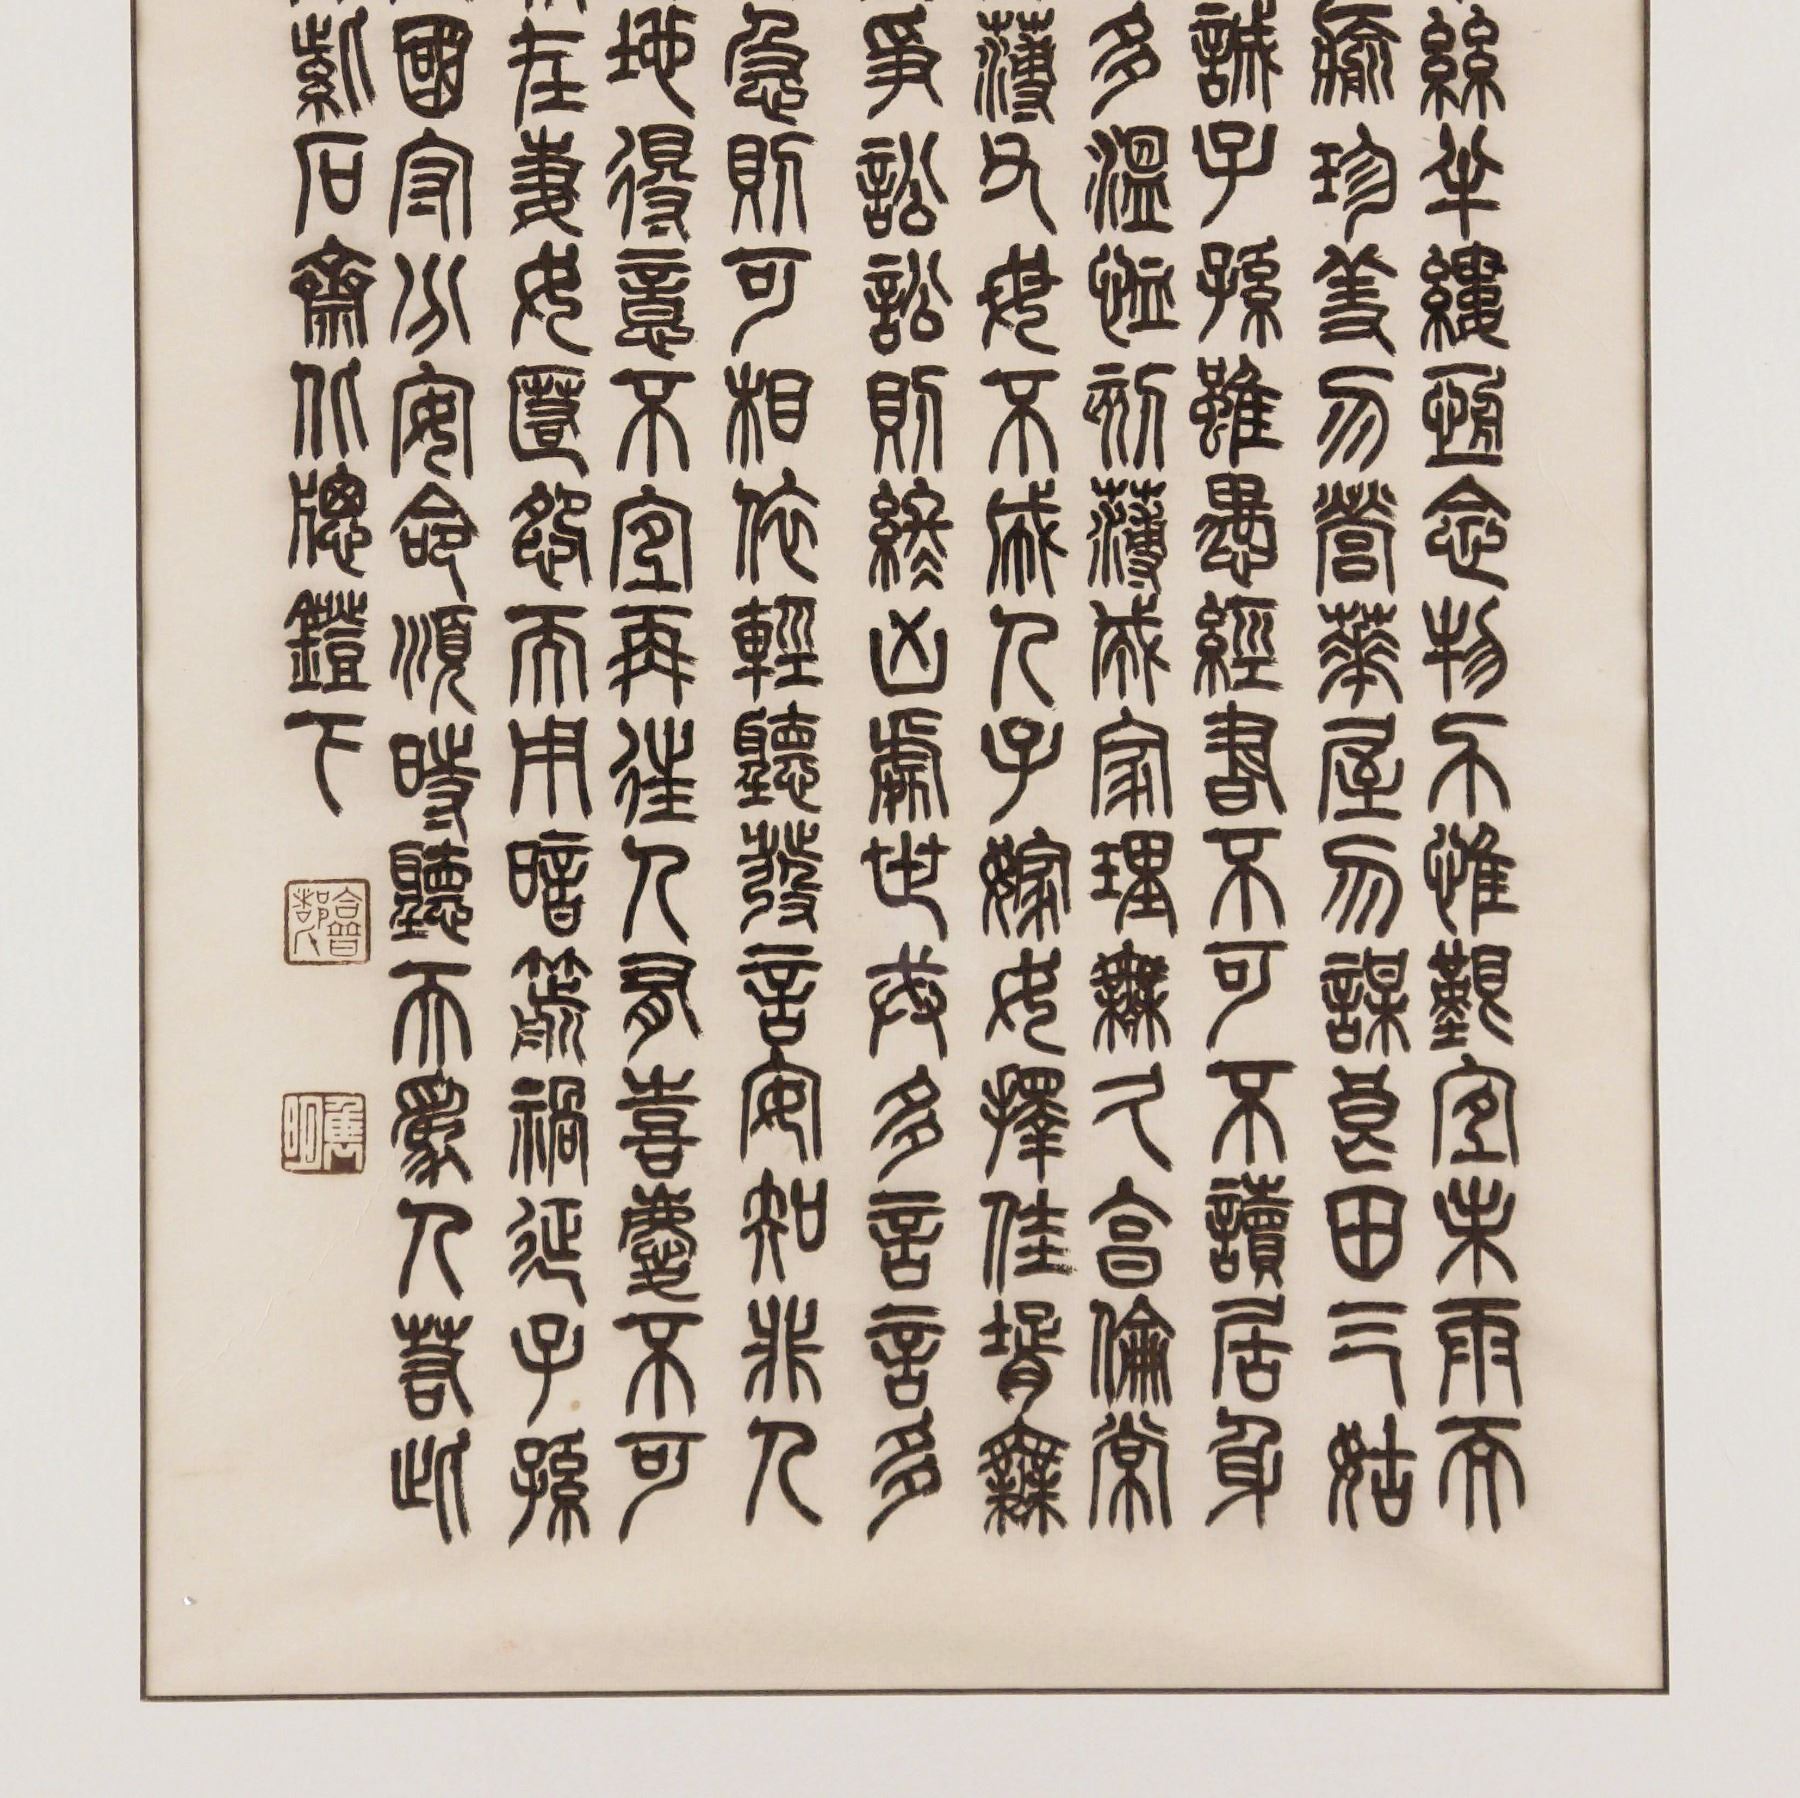 絲半縷恆念物力惟艱宜未雨而
瘉珍羞勿營華屋勿謀良田三姑
誠子孫雖愚經書不可不讀居身
多溫恤刻薄成家理無久享倫常
薄父母不成人子嫁女擇佳婿無
爭訟訟則終凶處世戒多言言多
急則可相依輕聽發言安知非人
地得意不宜再往人有喜慶不可
在妻女匿怨而用暗箭禍延子孫
國守分安命順時聽天爲人若此
紫石齋北牕鐙下